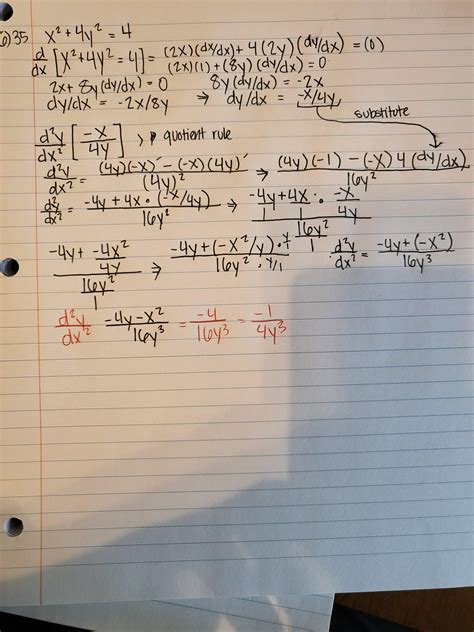 6) 35 x² + 4y² = 4
d/dx [x² + 4y² = 4] = (2x)(dy/dx) + 4(2y)(dy/dx) = (0)
(2x)(1) + (8y)(dy/dx) = 0
2x + 8y(dy/dx) = 0 8y(dy/dx) = -2x
dy/dx = -2x/8y → dy/dx = -x/4y
substitute
d²y/dx² [-x/4y] → quotient rule
d²y/dx² = ((4y)(-x)' - (-x)(4y)')/(4y)² → ((4y)(-1) - (-x)4(dy/dx))/16y²
d²y/dx² = (-4y + 4x · (-x/4y))/16y² → (-4y/1 + 4x/1 · -x/4y)/(16y²/1)
(-4y + -4x²/4y)/(16y²/1) → (-4y + (-x²/y) · y/1)/(16y² · y/1) d²y/dx² = (-4y + (-x²))/16y³
d²y/dx² (-4y - x²)/16y³ = -4/16y³ = -1/4y³